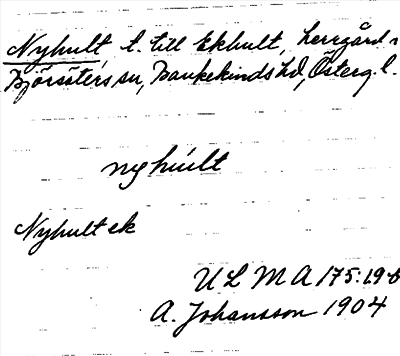 Nyhult, t. till Ekhult, herrgård i
Björsäters sn, Bankekinds hd, Österg. l.
nyhúlt
Nyhult ek
ULMA 175:19
A. Johansson 1904